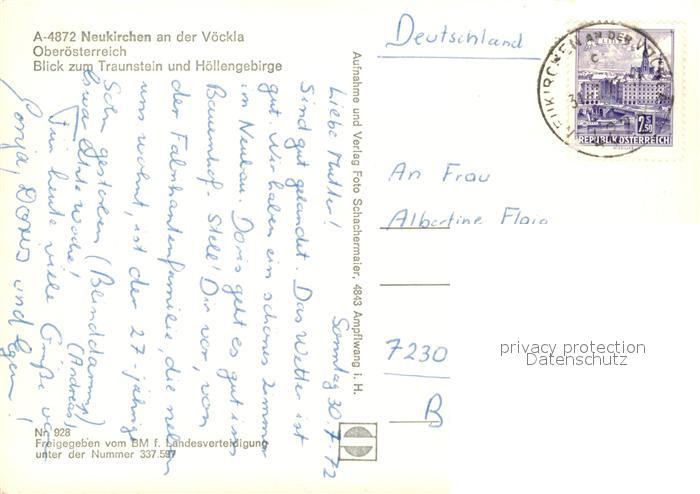 A-4872 Neukirchen an der Vöckla
Oberösterreich
Blick zum Traunstein und Höllengebirge
Sonntag 30.7.72
Liebe Mutter!
Sind gut gelandet. Das Wetter ist
gut. Wir haben ein schönes Zimmer
im Neubau. Doris geht es gut ins
Bauernhof. Stell' Dir vor, von
der Fabrikantenfamilie, die neben
uns wohnt, ist der 27-jährige
Sohn gestorben (Blinddarm)
(Andreas)
letzte Woche!
Für heute viele Grüße von
Sonja, Doris und Egon!
Nr. 928
Freigegeben vom BM f. Landesverteidigung
unter der Nummer 337.597
Aufnahme und Verlag Foto Schachermaier, 4843 Ampflwang i. H.
Deutschland
NEUKIRCHEN AN DER VÖCKLA
2 S 50
REPUBLIK ÖSTERREICH
An Frau
Albertine Flaig
7230
B
privacy protection
Datenschutz